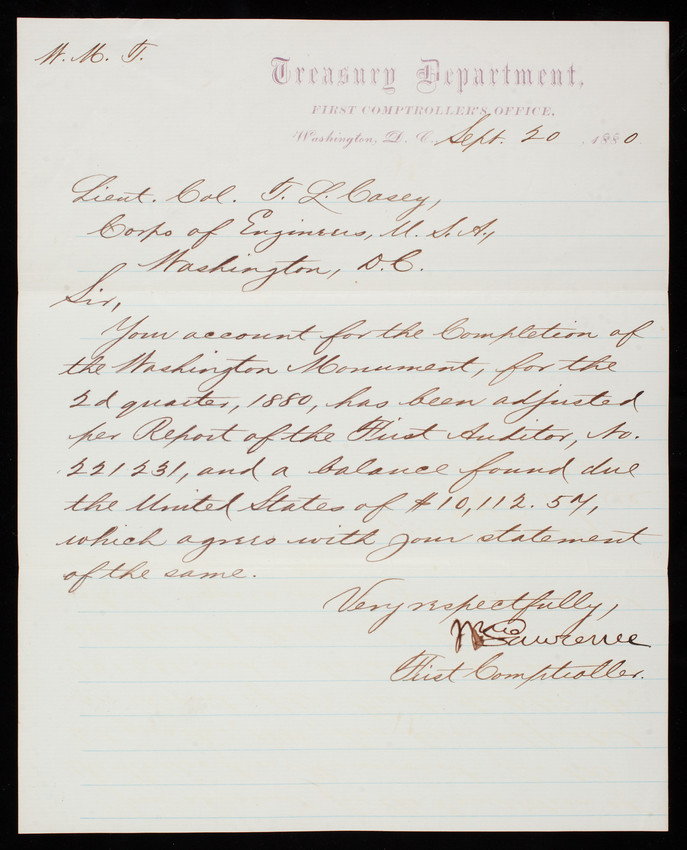 W. M. T.
Treasury Department,
FIRST COMPTROLLER'S OFFICE,
Washington, D. C. Sept. 20, 1880.
Lieut. Col. T. L. Casey,
Corps of Engineers, U.S.A.,
Washington, D.C.
Sir,
Your account for the Completion of
the Washington Monument, for the
2d quarter, 1880, has been adjusted
per Report of the First Auditor, No.
221231, and a balance found due
the United States of $10,112.57,
which agrees with your statement
of the same.
Very respectfully,
Wm Lawrence
First Comptroller.